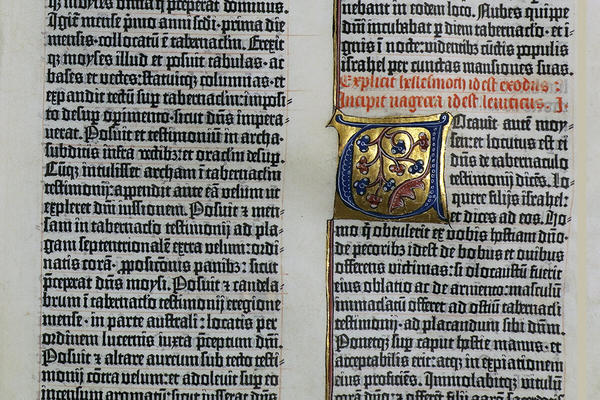 q̃ moyses oīa q̃ p̃ceperat dominus.
Igit̃ mense p̃mo anni scd̃i · prima die
mensis · collocatū ē tabernaclm̄. Erexit
q; moyses illud et posuit tabulas · ac
bases et vectes: statuitq; columnas · et
expandit tectū sup̄ tabernaclm̄: imposi-
to desup̄ opimento · sicut dn̄s impera-
verat. Posuit et testimoniū in archa·
subditis infra vectibz: et oraclm̄ desup̄.
Cūq; intulisset archam ī tabernaclm̄
testimonij: appendit ante eā velum ut
expleret dn̄i iussionem. Posuit et men-
sam in tabernaclo testimonij ad pla-
gam septentrionalē extra velum: ordi-
natis corā · p̱posic̄onis panibz: sicut
p̃ceperat dn̄s moysi. Posuit et candela-
brum ī tabernac̄lo testimonij e regione
mense · in parte australi: locatis per
ordinem lucernis iuxta p̃ceptum dn̄i.
Posuit et altare aureum sub tecto testi-
monij cōtra velum: et adolevit sup̄ eo
incensum aromatū: sicut iusserat dn̄s
nebant in eodem loco. Nubes quippe
dn̄i incubabat p̱ diem tabernaclo · et i-
gnis ī nocte: vidētibz cūctis populis
israhel per cunctas mansiones suas.
Explicit hellesmoth id est exodus :
Incipit vagecra id est leviticus. I·
Vocavit autē moy-
sen: et locutus est ei
dn̄s de tabernaculo
testimonij dicēs. Lo-
quere filijs israhel:
et dices ad eos. Ho-
mo q̇ obtulerit ex vobis hostiam dn̄o·
de pecoribz · id est de bobus et ovibus
offerens victimas: si olocaustū fuerit
eius oblatio ac de armento: masculū
immaclatū offeret ad ostiū tabernacli
testimonij · ad placandum sibi dn̄m.
Ponetq; sup̄ caput hostie manus · et
acceptabilis erit: atq; in expiationem
eius proficiēs. Immolabitq; vitulū
corā dn̄o: et offerēt filij aarō sacerdotes